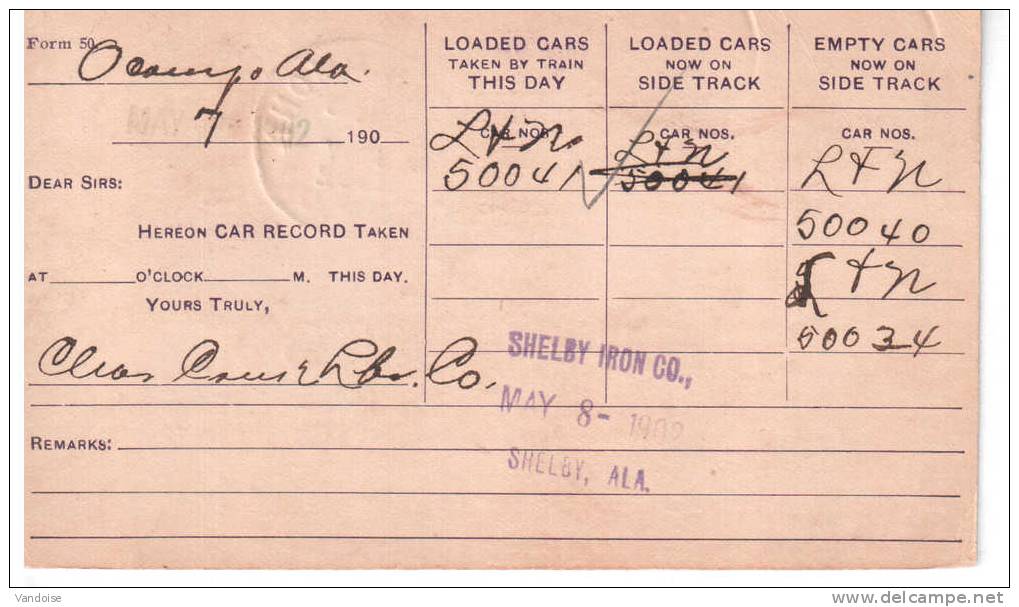 Form 50
Ocampo Ala.
MAY
7
190
DEAR SIRS:
HEREON CAR RECORD TAKEN
AT O'CLOCK M. THIS DAY.
YOURS TRULY,
Co.
LOADED CARS
TAKEN BY TRAIN
THIS DAY
CAR NOS.
L & N
50041
LOADED CARS
NOW ON
SIDE TRACK
CAR NOS.
L & N
50041
EMPTY CARS
NOW ON
SIDE TRACK
CAR NOS.
L & N
50040
L & N
50034
SHELBY IRON CO.,
MAY 8- 1902
SHELBY, ALA.
REMARKS:
Vandoise
www.delcampe.net